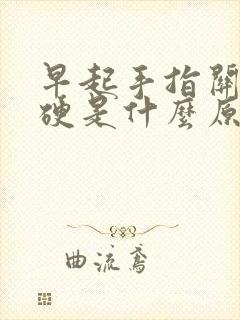 早起手指關
硬是什麼原
曲流鳶